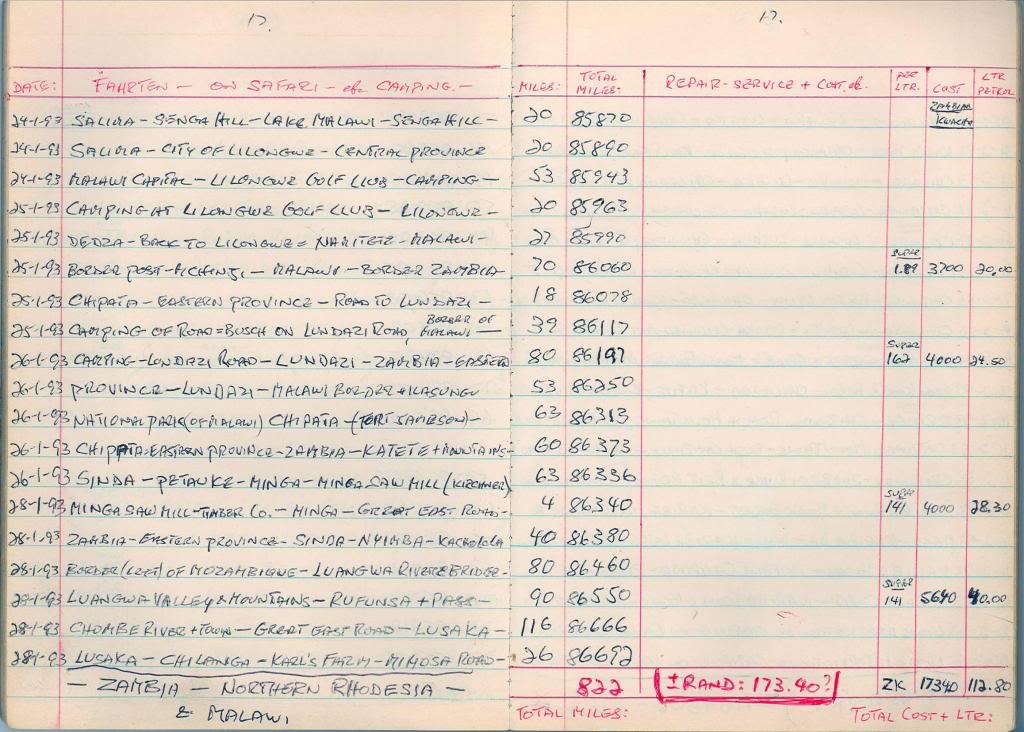 17.
17.
DATE: FAHRTEN — ON SAFARI - CAMPING. — MILES: TOTAL MILES: REPAIR - SERVICE + COST. PER LTR. COST LTR PETROL
ZAMBIAN KWACHA
24-1-93 SALIMA - SENGA HILL - LAKE MALAWI - SENGA HILL - 20 85870
24-1-93 SALIMA - CITY OF LILONGWE - CENTRAL PROVINCE 20 85890
24-1-93 MALAWI CAPITAL - LILONGWE GOLF CLUB - CAMPING - 53 85943
25-1-93 CAMPING AT LILONGWE GOLF CLUB - LILONGWE - 20 85963
25-1-93 DEDZA - BACK TO LILONGWE = - MALAWI - 27 85990
25-1-93 BORDER POST - MCHINJI - MALAWI - BORDER ZAMBIA - 70 86060 SUPER 1.89 3700 20,00
25-1-93 CHIPATA - EASTERN PROVINCE - ROAD TO LUNDAZI - 18 86078
25-1-93 CAMPING OF ROAD = BUSCH ON LUNDAZI ROAD, BORDER OF MALAWI — 39 86117
26-1-93 CAMPING - LUNDAZI ROAD - LUNDAZI - ZAMBIA - EASTERN 80 86197 SUPER 162 4000 24.50
26-1-93 PROVINCE - LUNDAZI - MALAWI BORDER + KASUNGU 53 86250
26-1-93 NATIONAL PARK (OF MALAWI) CHIPATA - (FORT JAMESON) - 63 86313
26-1-93 CHIPATA = EASTERN PROVINCE - ZAMBIA - KATETE + MOUNTAINS - 60 86373
26-1-93 SINDA - PETAUKE - MINGA - MINGA SAW MILL (KIRCHNER) 63 86336
28-1-93 MINGA SAW MILL - TIMBER CO. - MINGA - GREAT EAST ROAD - 4 86340 SUPER 141 4000 28.30
28-1-93 ZAMBIA - EASTERN PROVINCE - SINDA - NYIMBA - KACHOLOLA 40 86380
28-1-93 BORDER (LEFT) OF MOZAMBIQUE - LUANGWA RIVER BRIDGE - 80 86460
28-1-93 LUANGWA VALLEY & MOUNTAINS - RUFUNSA + PASS - 90 86550 SUPER 141 5640 40.00
28-1-93 CHOMBE RIVER + TOWN - GREAT EAST ROAD - LUSAKA - 116 86666
28-1-93 LUSAKA - CHILANGA - KARL'S FARM - MIMOSA ROAD - 26 86692
— ZAMBIA — NORTHERN RHODESIA — 822 ± RAND: 173.40? ZK 17340 112.80
& MALAWI TOTAL MILES: TOTAL COST + LTR: